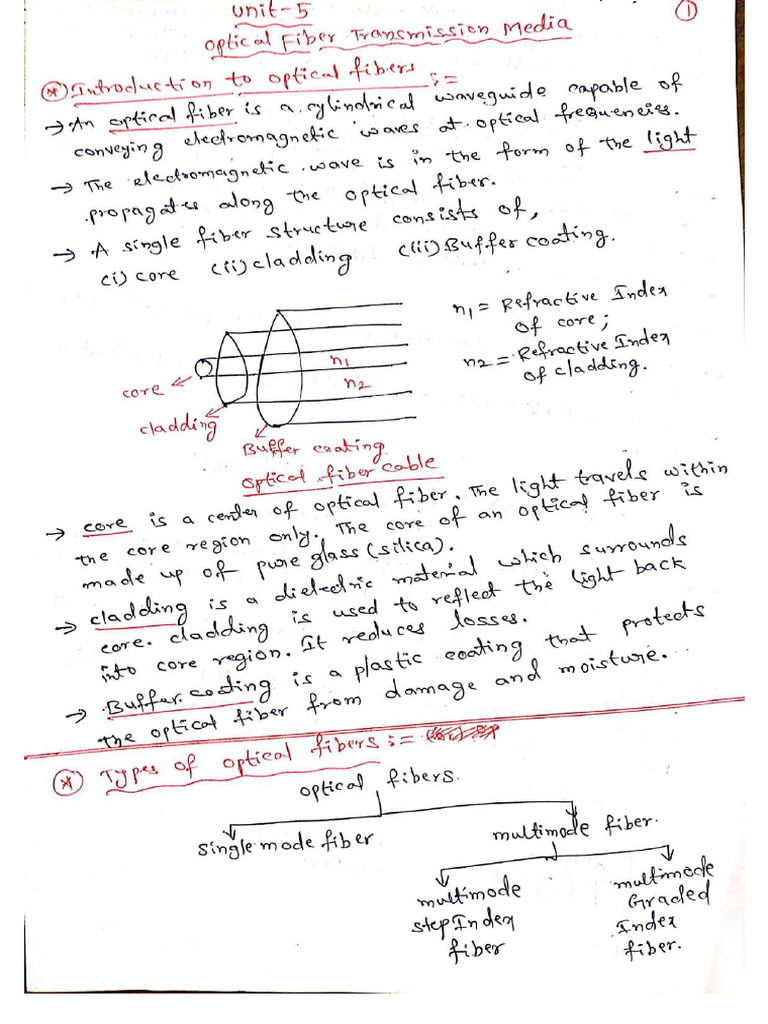 Unit-5
①
Optical Fiber Transmission Media
* Introduction to optical fibers :=
→ An optical fiber is a cylindrical waveguide capable of
conveying electromagnetic waves at optical frequencies.
→ The electromagnetic wave is in the form of the light
propagates along the optical fiber.
→ A single fiber structure consists of,
(i) core (ii) cladding (iii) Buffer coating.
n1 = Refractive Index
of core;
n2 = Refractive Index
of cladding.
n1
n2
core
cladding
Buffer coating
Optical fiber cable
→ core is a center of optical fiber. The light travels within
the core region only. The core of an optical fiber is
made up of pure glass (silica).
→ cladding is a dielectric material which surrounds
core. cladding is used to reflect the light back
into core region. It reduces losses.
→ Buffer coating is a plastic coating that protects
the optical fiber from damage and moisture.
* Types of optical fibers :=
optical fibers.
single mode fiber
multimode fiber.
multimode
step Index
fiber
multimode
Graded
Index
fiber.